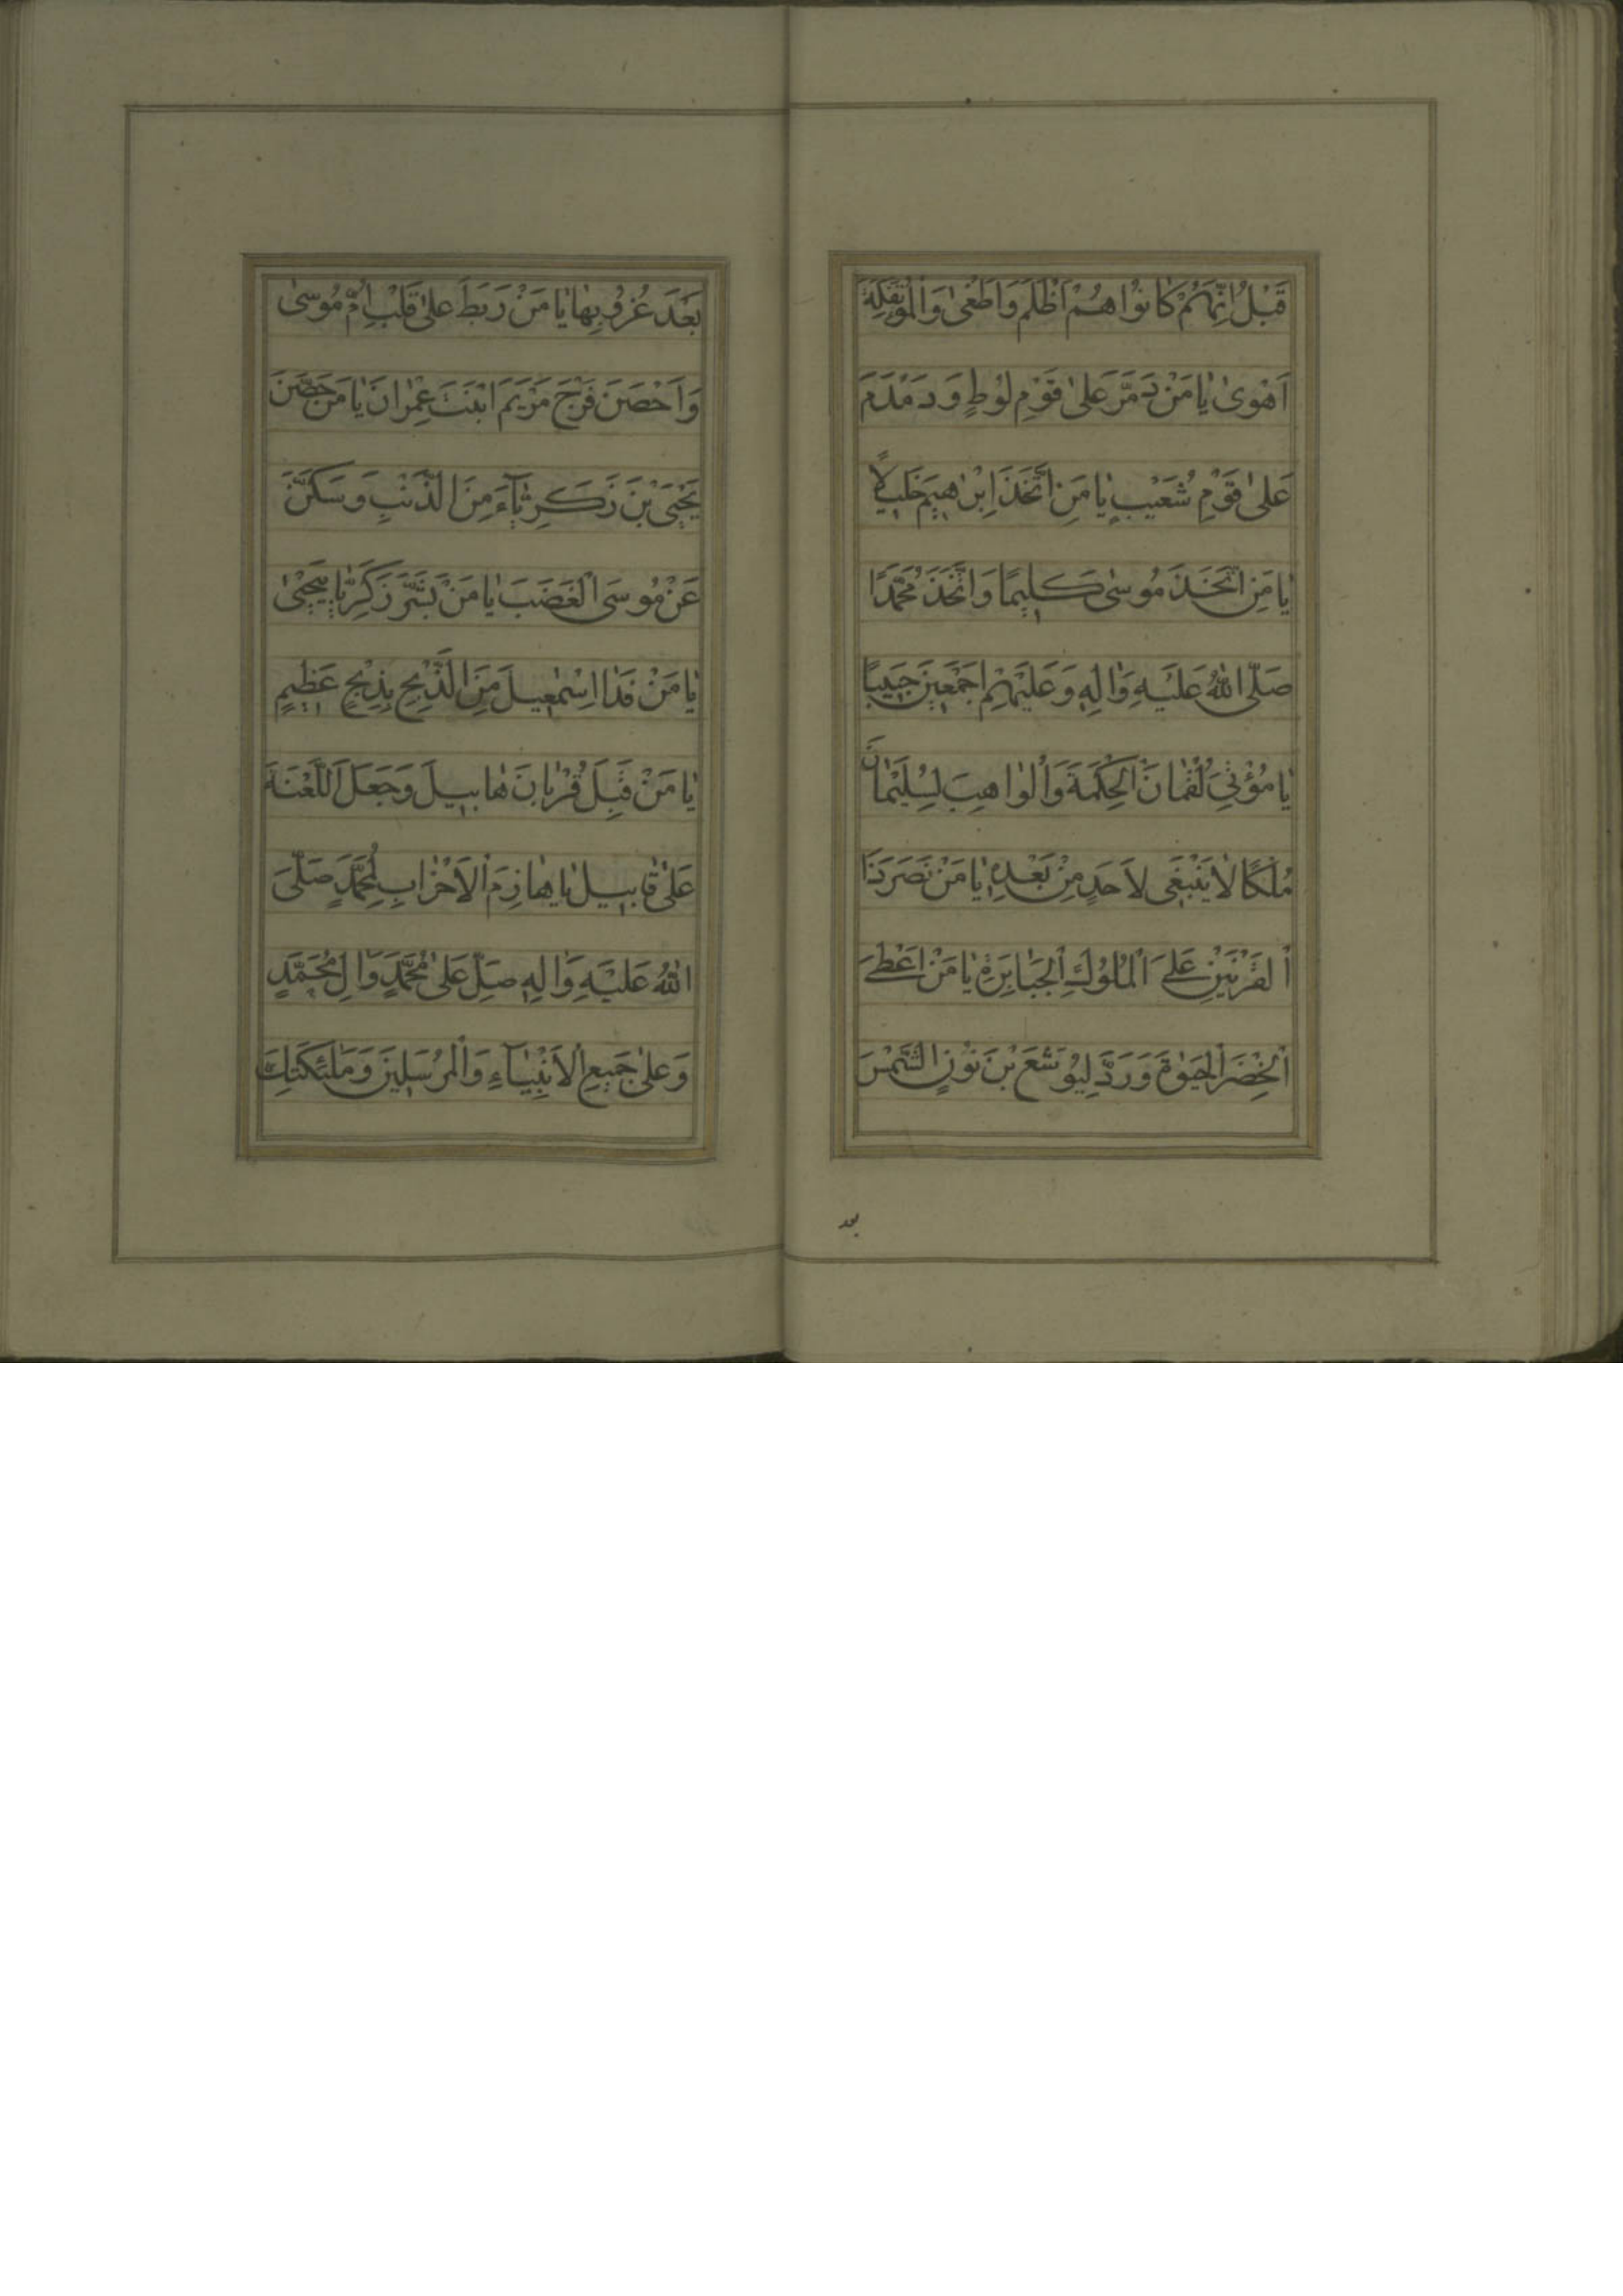 قَبْلُ اِنَّهُمْ كٰانُوا هُمْ اَظْلَمَ وَاَطْغىٰ وَالْمُؤْتَفِكَةَ
اَهْوىٰ يٰا مَنْ دَمَّرَ عَلىٰ قَوْمِ لُوْطٍ وَ دَمْدَمَ
عَلىٰ قَوْمِ شُعَيْبٍ يٰا مَنِ اتَّخَذَ اِبْرٰهيٖمَ خَليٖلاً
يٰا مَنِ اتَّخَذَ مُوسىٰ كَليٖمًا وَ اتَّخَذَ مُحَمَّدًا
صَلَّى اللّٰهُ عَلَيْهِ وَاٰلِهٖ وَ عَلَيْهِمْ اَجْمَعيٖنَ حَبيٖبًا
يٰا مُؤْتِيَ لُقْمٰانَ الْحِكْمَةَ وَالْوٰاهِبَ لِسُلَيْمٰانَ
مُلْكًا لاٰ يَنْبَغىٖ لاَحَدٍ مِنْ بَعْدِهٖ يٰا مَنْ نَصَرَ ذَا
الْقَرْنَيْنِ عَلَى الْمُلُوْكِ الْجَبٰابِرَةِ يٰا مَنْ اَعْطىَ
الْخِضْرَ الْحَيٰوةَ وَ رَدَّ لِيُوشَعَ بْنَ نُوْنٍ الشَّمْسَ
بعد
بَعْدَ غُرُوْبِهٰا يٰا مَنْ رَبَطَ عَلىٰ قَلْبِ اُمِّ مُوسىٰ
وَ اَحْصَنَ فَرْجَ مَرْيَمَ ابْنَتَ عِمْرٰانَ يٰا مَنْ حَصَّنَ
يَحْيَى بْنَ زَكَرِيّٰآءَ مِنَ الذَّنْبِ وَ سَكَّنَ
عَنْ مُوسَى الْغَضَبَ يٰا مَنْ بَشَّرَ زَكَرِيّٰا بِيَحْيىٰ
يٰا مَنْ فَدٰا اِسْمٰعيٖلَ مِنَ الذَّبْحِ بِذِبْحٍ عَظيٖمٍ
يٰا مَنْ قَبِلَ قُرْبٰانَ هٰابيٖلَ وَجَعَلَ اللَّعْنَةَ
عَلىٰ قٰابيٖلَ يٰا هٰازِمَ الْاَحْزٰابِ لِمُحَمَّدٍ صَلَّى
اللّٰهُ عَلَيْهِ وَاٰلِهٖ صَلِّ عَلىٰ مُحَمَّدٍ وَ اٰلِ مُحَمَّدٍ
وَ عَلىٰ جَميٖعِ الْاَنْبِيٰآءِ وَالْمُرْسَليٖنَ وَ مَلٰئِكَتِكَ